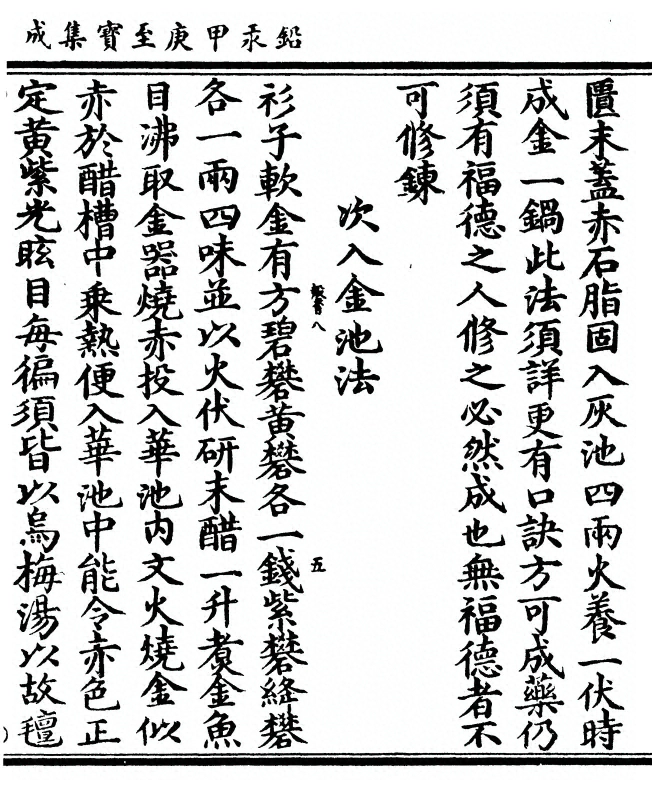 鉛汞甲庚至寶集成
匱末蓋赤石脂固入灰池四兩火養一伏時
成金一鍋此法須詳更有口訣方可成藥仍
須有福德之人修之必然成也無福德者不
可修鍊
次入金池法
八
五
衫子軟金有方碧礬黄礬各一錢紫礬絳礬
各一兩四味並以火伏研末醋一升煮金魚
目沸取金器燒赤投入華池内文火燒金似
赤於醋槽中乗熱便入華池中能令赤色正
定黄紫光眩目每徧須皆以烏梅湯以故氊